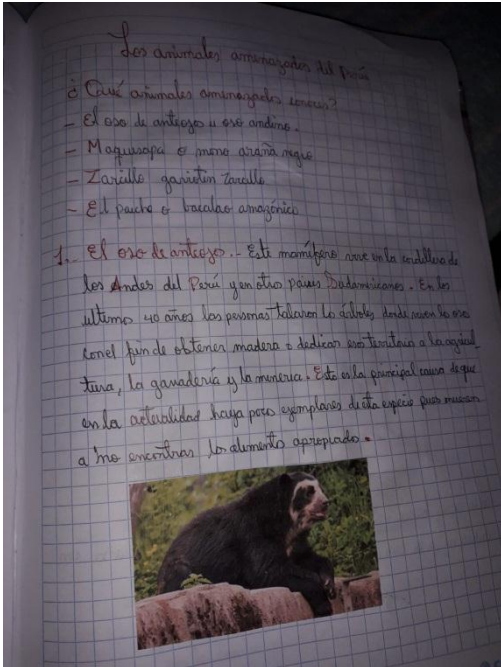 Los animales amenazados del Perú
¿Qué animales amenazados conoces?
- El oso de anteojos u oso andino.
- Maquisapa o mono araña negro
- Zarcillo gaviotín zarcillo
- El paiche o bacalao amazónico
1.- El oso de anteojo.- Este mamífero vive en la cordillera de
los Andes del Perú y en otros países Sudamericanos. En los
ultimos 40 años las personas talaron los árboles donde viven los oso
con el fin de obtener madera o dedican esos territorio a la agricul
tura, la ganadería y la minería. Esta es la principal causa de que
en la actualidad haya poco ejemplares de esta especie pues mueren
a no encontrar los alimento apropiado.